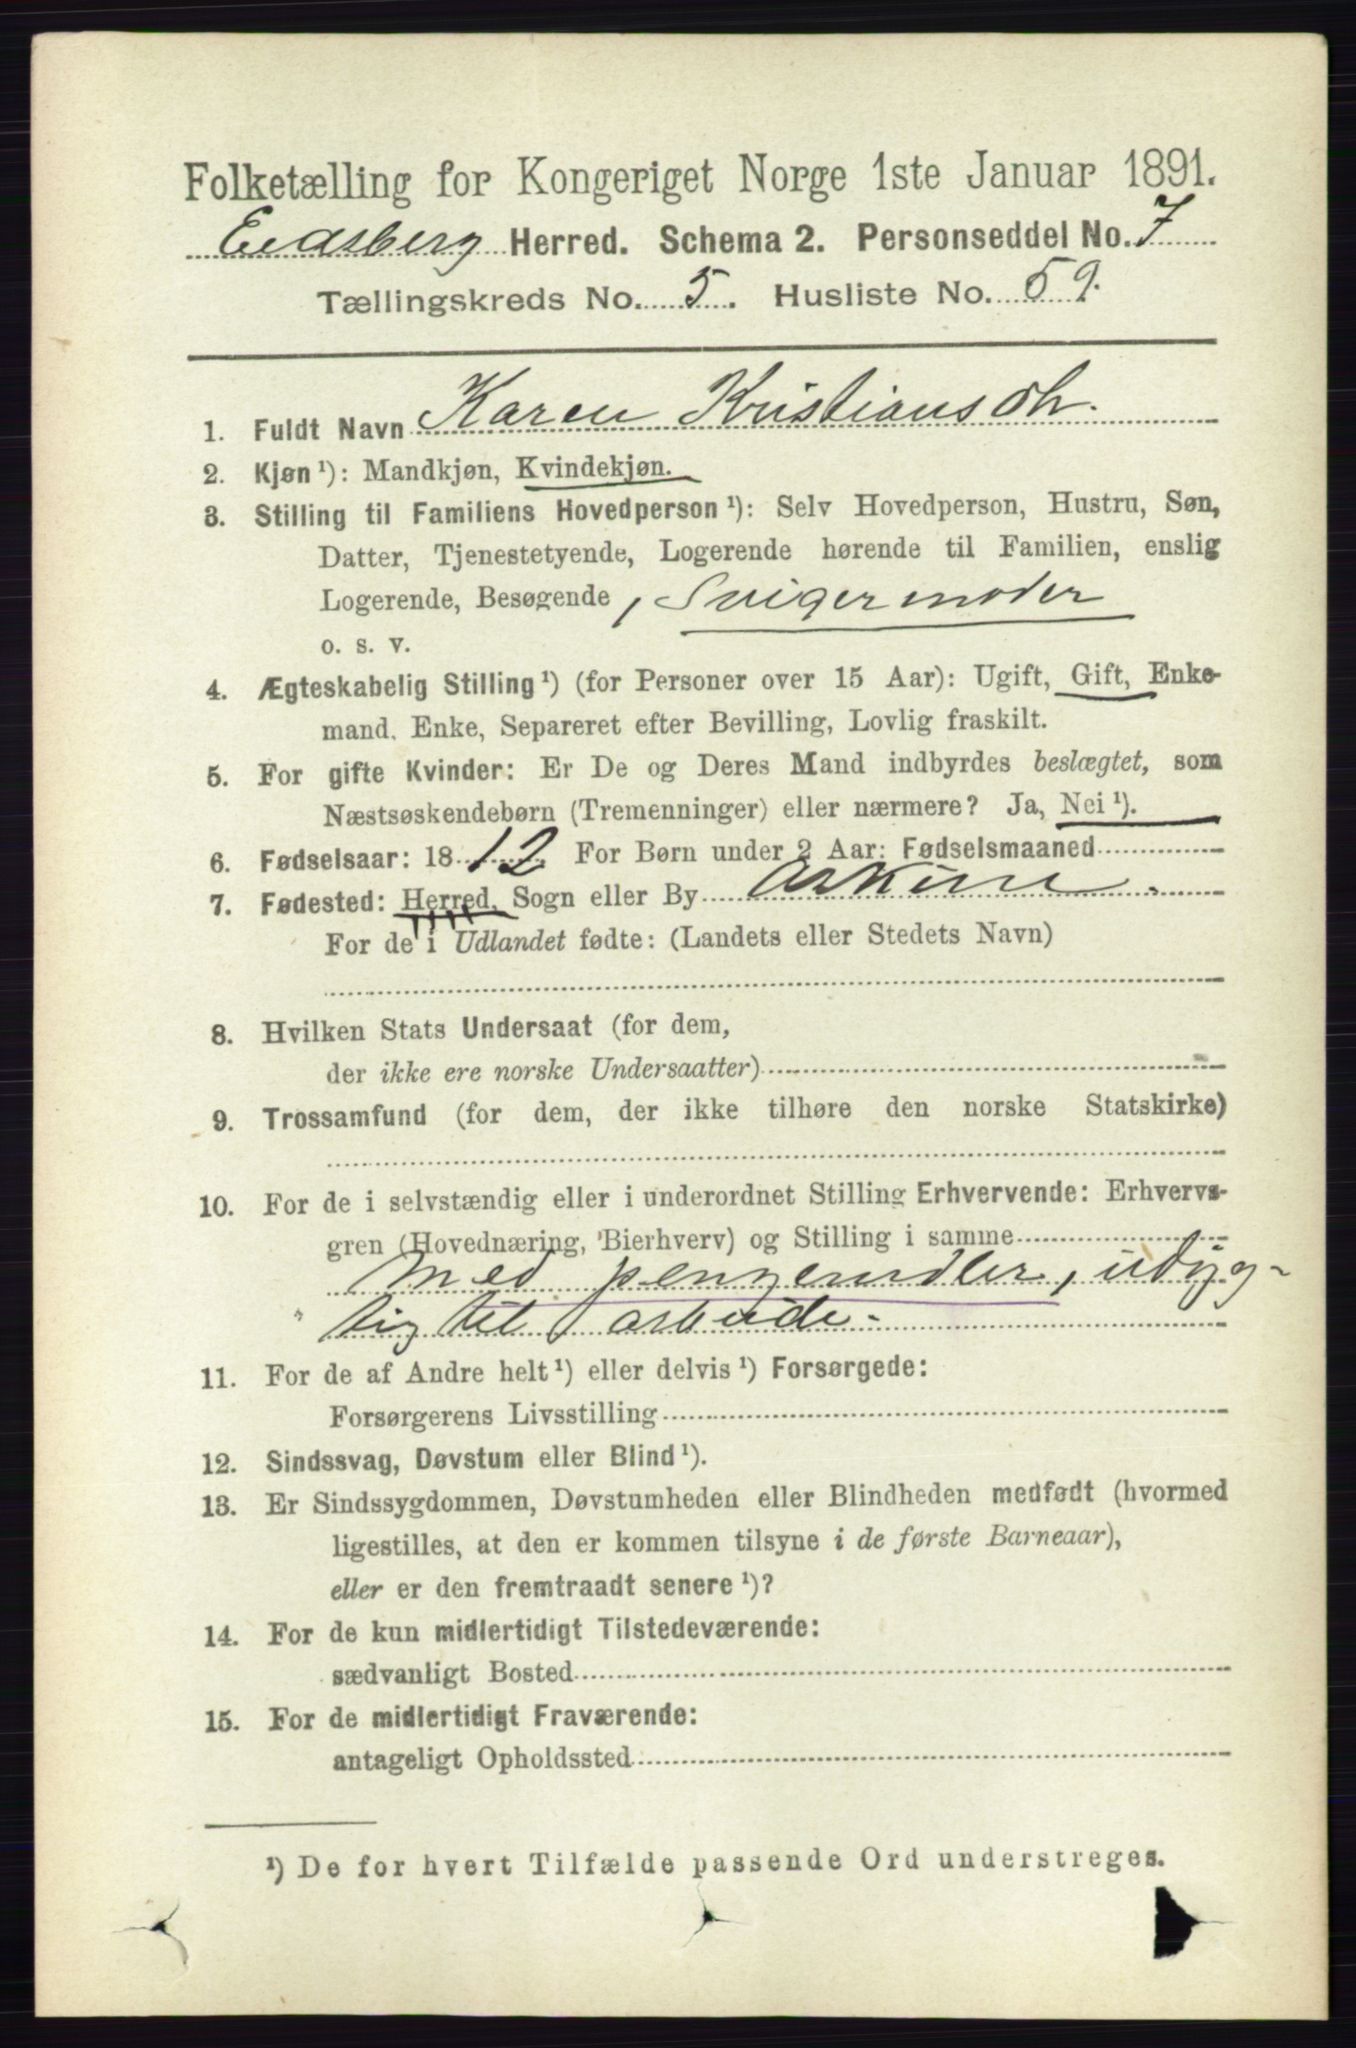 Folketælling for Kongeriget Norge 1ste Januar 1891.
Eidsberg Herred. Schema 2. Personseddel No. 7
Tællingskreds No. 5. Husliste No. 59.
1. Fuldt Navn Karen Kristiansdh.
2. Kjøn ¹): Mandkjøn, Kvindekjøn.
3. Stilling til Familiens Hovedperson ¹): Selv Hovedperson, Hustru, Søn,
Datter, Tjenestetyende, Logerende hørende til Familien, enslig
Logerende, Besøgende, Svigermoder
o. s. v.
4. Ægteskabelig Stilling ¹) (for Personer over 15 Aar): Ugift, Gift, Enke-
mand, Enke, Separeret efter Bevilling, Lovlig fraskilt.
5. For gifte Kvinder: Er De og Deres Mand indbyrdes beslægtet, som
Næstsøskendebørn (Tremenninger) eller nærmere? Ja, Nei ¹).
6. Fødselsaar: 1812. For Børn under 2 Aar: Fødselsmaaned
7. Fødested: Herred, Sogn eller By Askim.
For de i Udlandet fødte: (Landets eller Stedets Navn)
8. Hvilken Stats Undersaat (for dem,
der ikke ere norske Undersaatter)
9. Trossamfund (for dem, der ikke tilhøre den norske Statskirke)
10. For de i selvstændig eller i underordnet Stilling Erhvervende: Erhvervs-
gren (Hovednæring, Bierhverv) og Stilling i samme
Med pengemidler, udyg-
tig til arbeide.
11. For de af Andre helt ¹) eller delvis ¹) Forsørgede:
Forsørgerens Livsstilling
12. Sindssvag, Døvstum eller Blind ¹).
13. Er Sindssygdommen, Døvstumheden eller Blindheden medfødt (hvormed
ligestilles, at den er kommen tilsyne i de første Barneaar),
eller er den fremtraadt senere ¹)?
14. For de kun midlertidigt Tilstedeværende:
sædvanligt Bosted
15. For de midlertidigt Fraværende:
antageligt Opholdssted
¹) De for hvert Tilfælde passende Ord understreges.